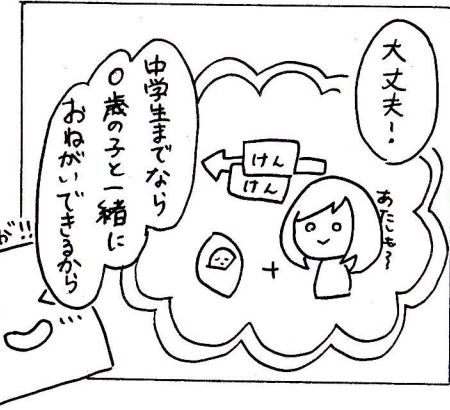 大丈夫!
中学生までなら
〇歳の子と一緒に
おねがいできるから
けん
けん
あたしも〜
が!!